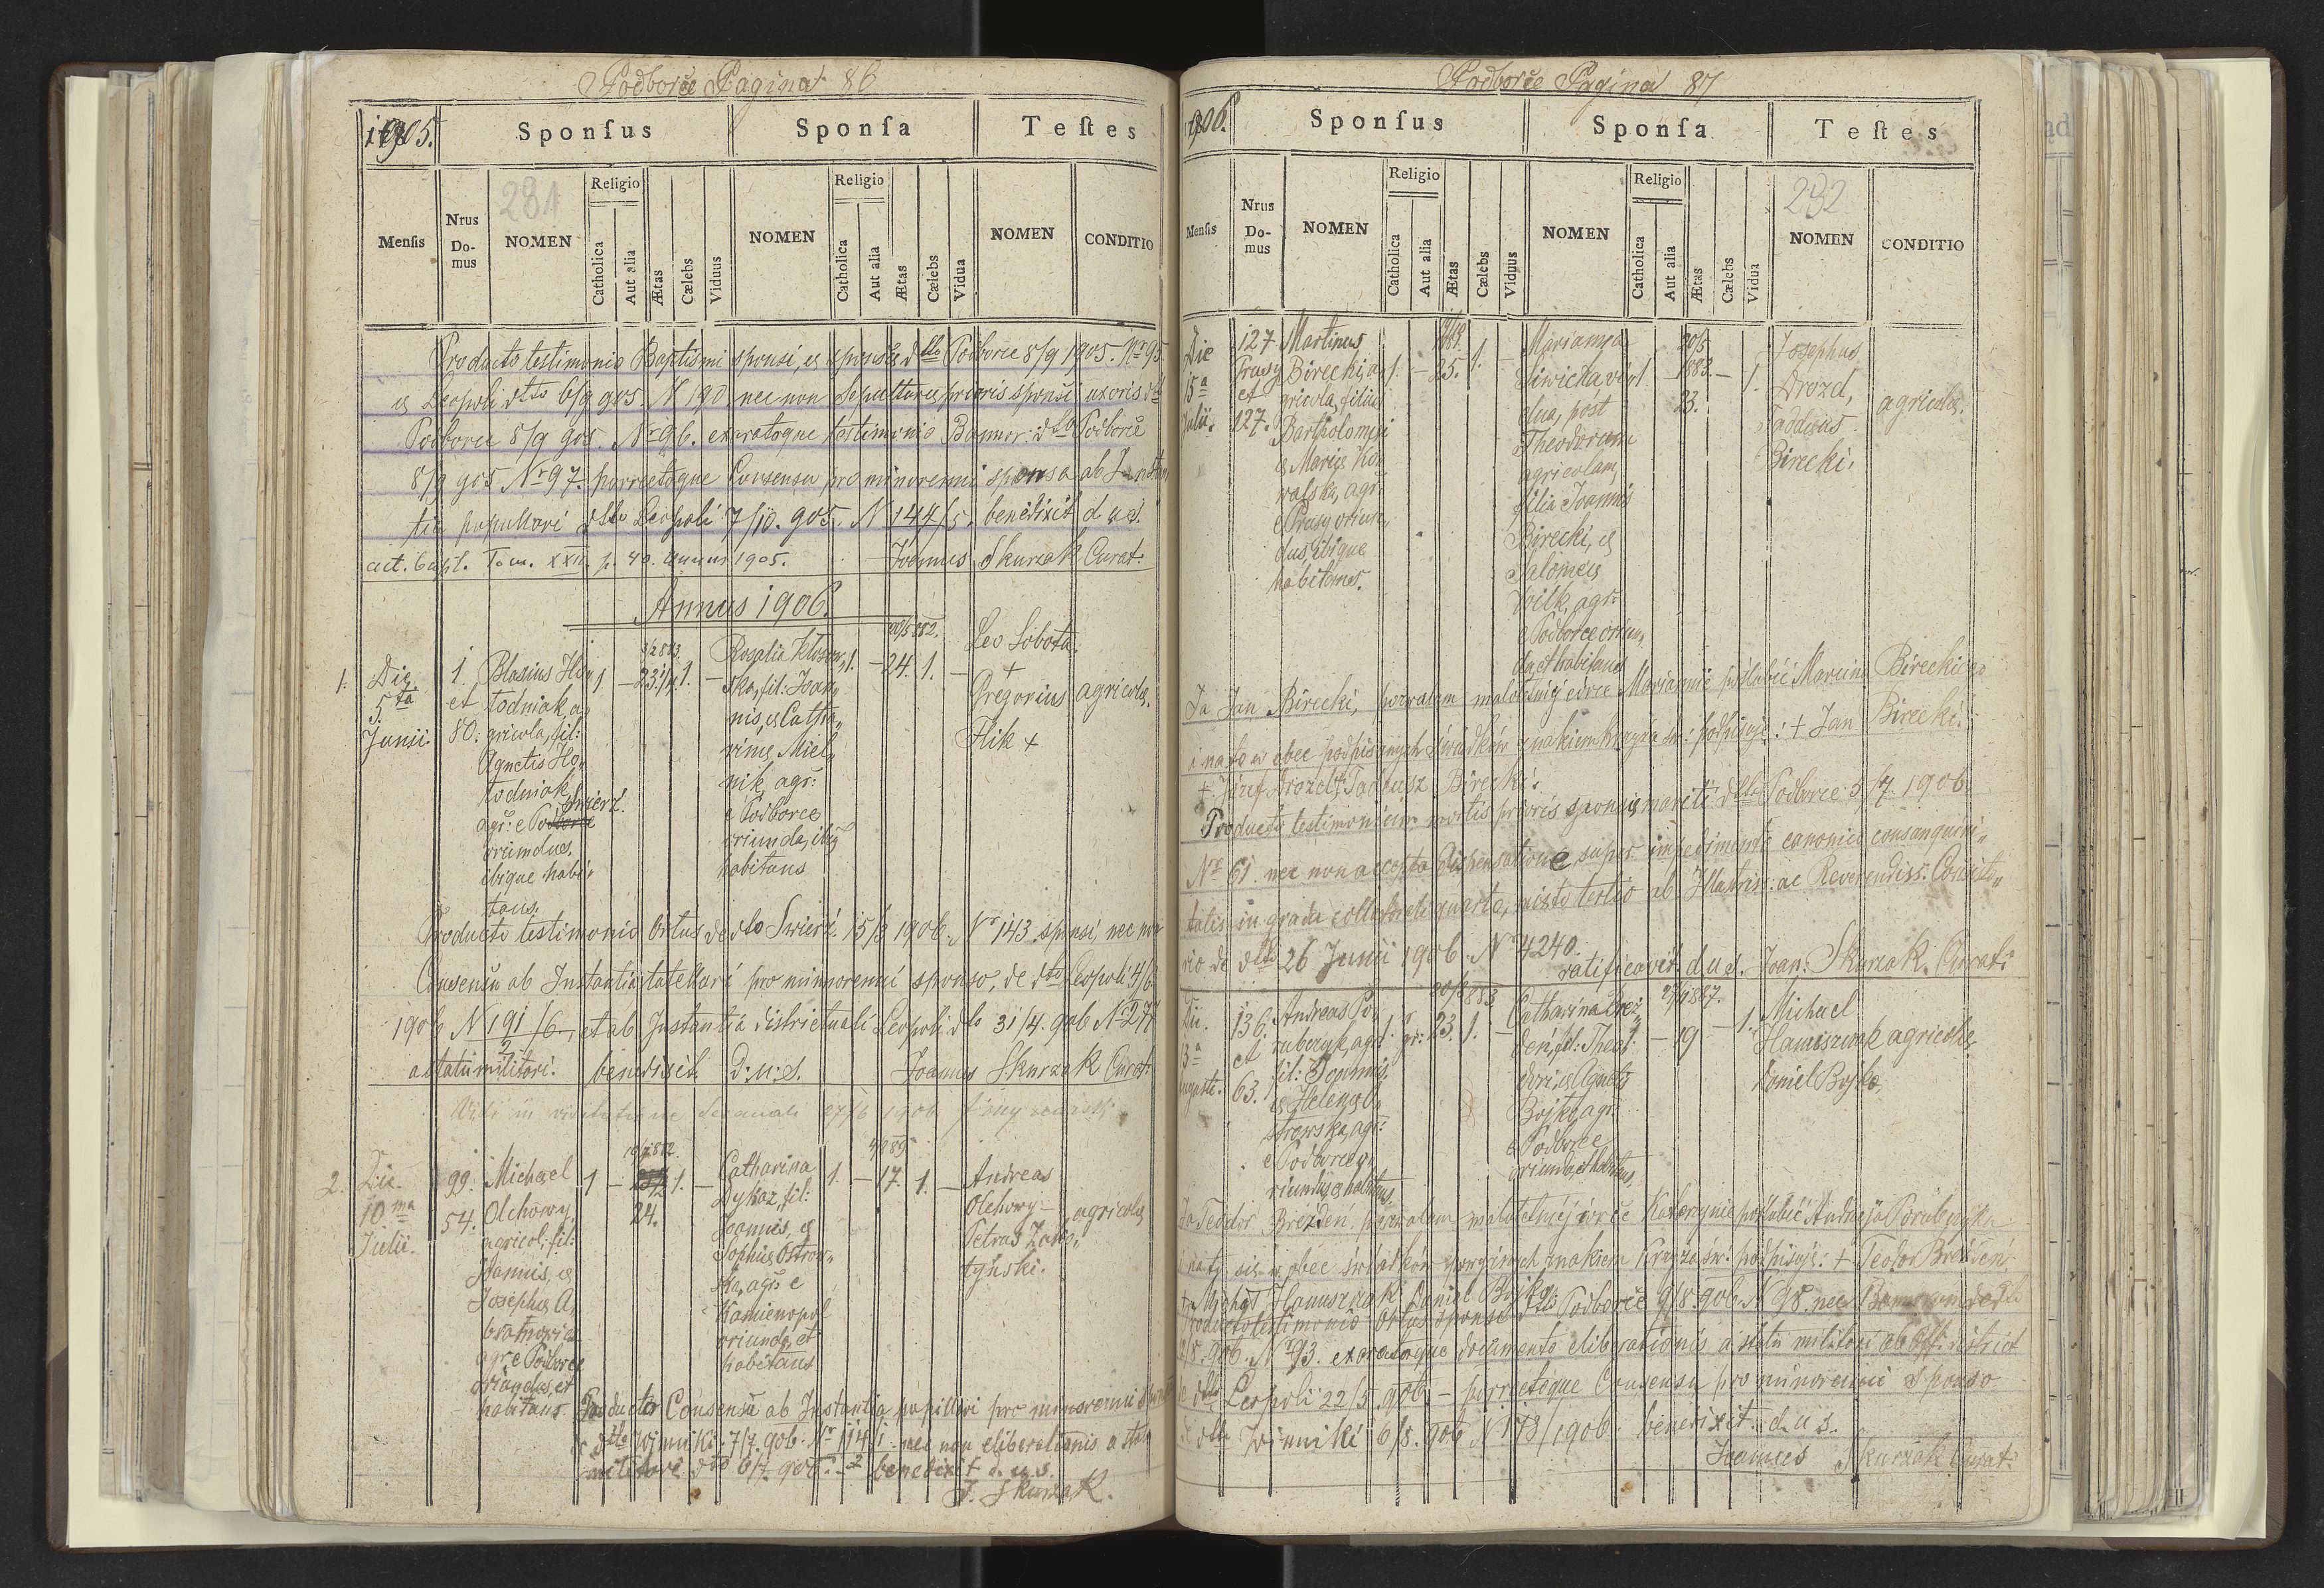 Podborce Pagina 86
1905.
Sponſus
Sponſa
Teſtes
Menſis
Nrus Domus
231
NOMEN
Religio
Catholica
Aut alia
Ætas
Cælebs
Viduus
NOMEN
Religio
Catholica
Aut alia
Ætas
Cælebs
Vidua
NOMEN
CONDITIO
Producto testimonio Baptismi sponsi, et sponsæ dtto Podborce 8/9 1905. Nr 95.
et Leopoli dtto 6/9 905. N 190 nec non Sepulturæ prioris sponsi uxoris dtto
Podborce 8/9 905. Nr 96. exaratoque testimonio Bannor. dtto Podborce
8/9 905 Nr 97. porrectoque Consensu pro minorenni sponsa ab Instan
tia pupillari dtto Leopoli 7/10. 905. N 144/5. benedixit d u s.
act. bapt. Tom. XXII p. 40. annus 1905. Joannes Skurzak Curat.
Annus 1906.
1. Die 5ta Junii.
1. et 80.
Blasius Ho
todniak, a
gricola, fil:
Agnetis Ho
todniak,
agr: e Podborce Zwierź.
oriundus,
ibique habi
tans.
1 - 23 1/4. 1. -
Rosalia Kłosow
ska, fil: Joan
nis, et Catha
rinæ Miel
nik, agr:
e Podborce
oriunda, ibiq
habitans
20/5 882.
1. - 24. 1. -
Leo Sobota
+
Gregorius
Flik +
agricolæ.
Producto testimonio Ortus de dto Swierź 15/3 1906. Nr 143. sponsi, nec non
Consensu ab Instantia tutellari pro minorenni sponso, de dto Leopoli 4/6
1906 N 191/6, et ab Instantia districtuali Leopoli dto 31/4. 906 N 277
2
a statu militari. benedixit D. u. s. Joannes Skurzak Curat.
Vidi in visitatione decanali 27/6 1906
2. Die 10ma Julii.
99. 54.
Michael
Olchowy,
agricol: fil:
Joannis, et
Josephæ A
bramowicz
agr. e Podborce
oriundus, et
habitans
1 - 24. 1. -
Catharina
Dykaz, fil:
Joannis, et
Sophiæ Ostrow
ska, agr: e
Kamienopol
oriunda, et
habitans
1. - 17. 1. -
Andreas
Olchowy -
Petrus Zabo
tyński.
agricolæ
Producto Consensu ab Instantia pupillari pro minorenni sponsa
de dtto Winniki. 7/7. 906. Nr 114/1. nec non eliberationis a statu
militari dto 6/7. 906. benedixit d. u. s.
J. Skurzak.
Podborce Pagina 87
1906.
Sponſus
Sponſa
Teſtes
Menſis
Nrus Domus
NOMEN
Religio
Catholica
Aut alia
Ætas
Cælebs
Viduus
NOMEN
Religio
Catholica
Aut alia
Ætas
Cælebs
Vidua
232
NOMEN
CONDITIO
Die 15a Julii.
127 Prusy et 127.
Martinus
Birecki, a
gricola, filius
Bartholomæi
et Mariæ Ko
walska, agr.
e Prusy oriun
dus, ibique
habitans.
1. - 25. 1.
Marianna
Siwicka vi
dua, post
Theodorum
agricolam,
filia Joannis
Birecki, et
Salomeæ
Wilk, agr:
e Podborce oriun
da et habitans
20/5 1883. 23. - 1.
Josephus
Drozd,
Taddæus
Birecki.
agricolæ.
Ja Jan Birecki, pozwalam małoletniej córce Mariannie poślubić Marcina Bireckiego
i na to w obec podpisanych świadków znakiem krzyża św: podpisuję: + Jan Birecki.
+ Józef Drozd, + Tadeusz Birecki.
Producto testimonium mortis prioris sponsæ mariti dtto Podborce 5/7. 1906
Nr 61. nec non accepta dispensatione super impedimento canonico consanguini
tatis in gradu collaterali quarto, mixto tertio ab Illustriss: ac Reverendiss: Consisto
rio de dtto 26 Junii 1906. Nr 4240.
ratificavit d u s. Joan: Skurzak. Curat:
Die 13a Augusti.
136. et 63.
Andreas Po
rubczyk, agr.
fil: Joannis,
et Helenæ O
strowska, agr:
e Podborce o
riundus, et habitans.
1. gr: 23. 1. -
Catharina Breź
deń, fil: Theo
dori, et Agnetis
Bojko, agr:
e Podborce
oriunda, et habitans
1887.
- 19 - 1.
Michael
Hanuszczak
Daniel Bojko,
agricolæ
Ja Teodor Breźdeń pozwalam małoletniej córce Katarzynie poślubić Andrzeja Porubczyka
i na tj. się w obec świadków znakiem Krzyża św: podpisuję: + Teodor Breźdeń.
Michał Hanuszczak, Daniel Bojko.
Producto testimonio Ortus sponsæ dtto Podborce 9/8 906 N 98. nec Bannorum dtto
906. N 93. exaratoque documento eliberationis a statu militari ab Off: district
de dtto Leopoli 22/5. 906. - porrectoque Consensu pro minorenni sponso
de dtto Winniki 6/8. 906 N 178/1906. benedixit d. u. s.
Joannes Skurzak Curat: